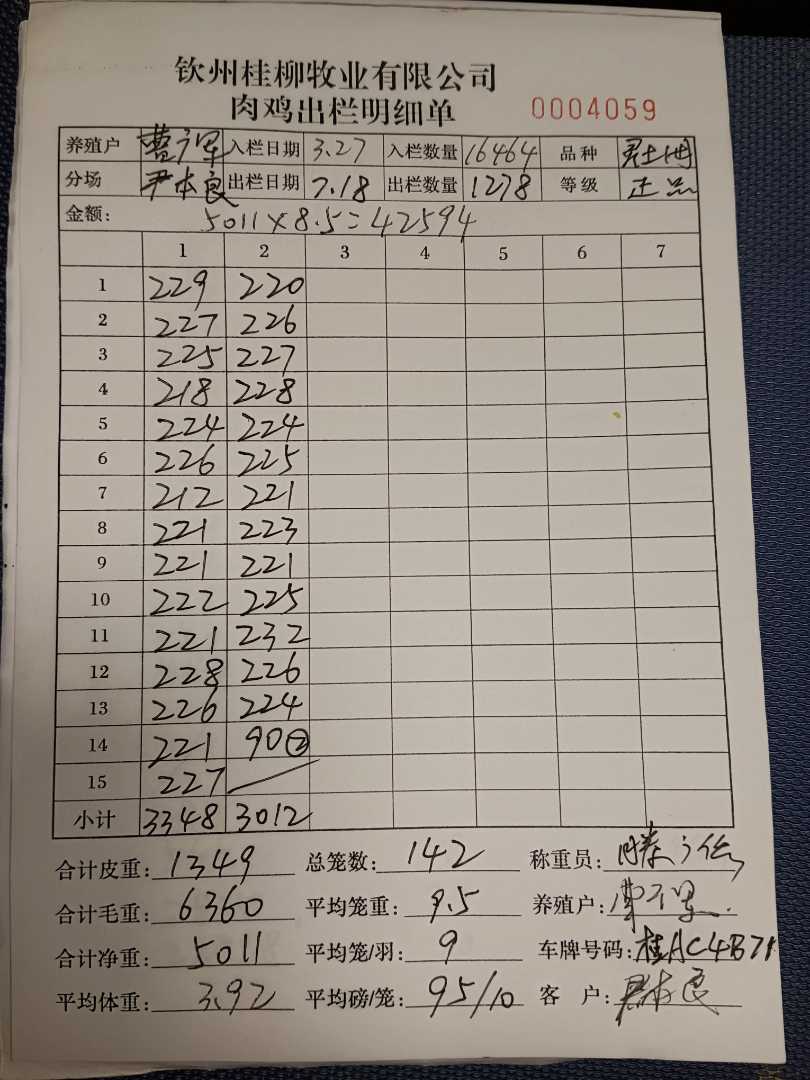 钦州桂柳牧业有限公司
肉鸡出栏明细单 0004059
养殖户 入栏日期 3.27 入栏数量 16464 品种
分场 尹本良 出栏日期 7.18 出栏数量 1278 等级 正品
金额: 5011×8.5=42594
1 2 3 4 5 6 7
1 229 220
2 227 226
3 225 227
4 218 228
5 224 224
6 226 225
7 212 221
8 221 223
9 221 221
10 222 225
11 221 232
12 228 226
13 226 224
14 221 90②
15 227
小计 3348 3012
合计皮重: 1349 总笼数: 142 称重员:
合计毛重: 6360 平均笼重: 9.5 养殖户:
合计净重: 5011 平均笼/羽: 9 车牌号码: 桂AC4B71
平均体重: 3.92 平均磅/笼: 95/10 客 户: